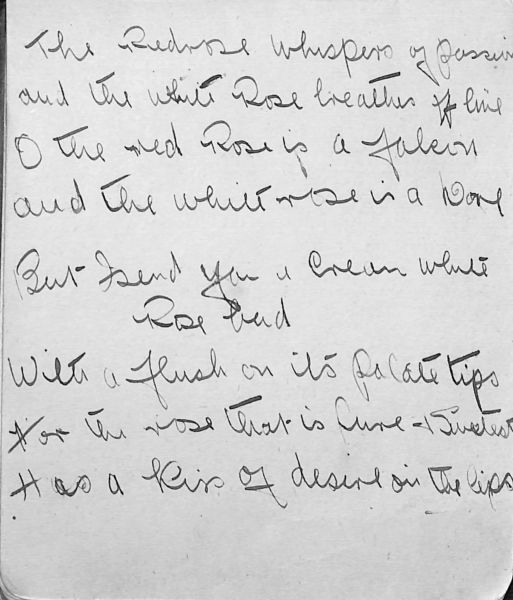 The Redrose whispers of passion
and the white Rose breathes of love
O the red Rose is a falcon
and the white rose is a Dove
But I send you a Cream white
Rose bud
With a flush on its palate tips
For the rose that is Pure & Sweetest
Has a Kiss of desire on the lips